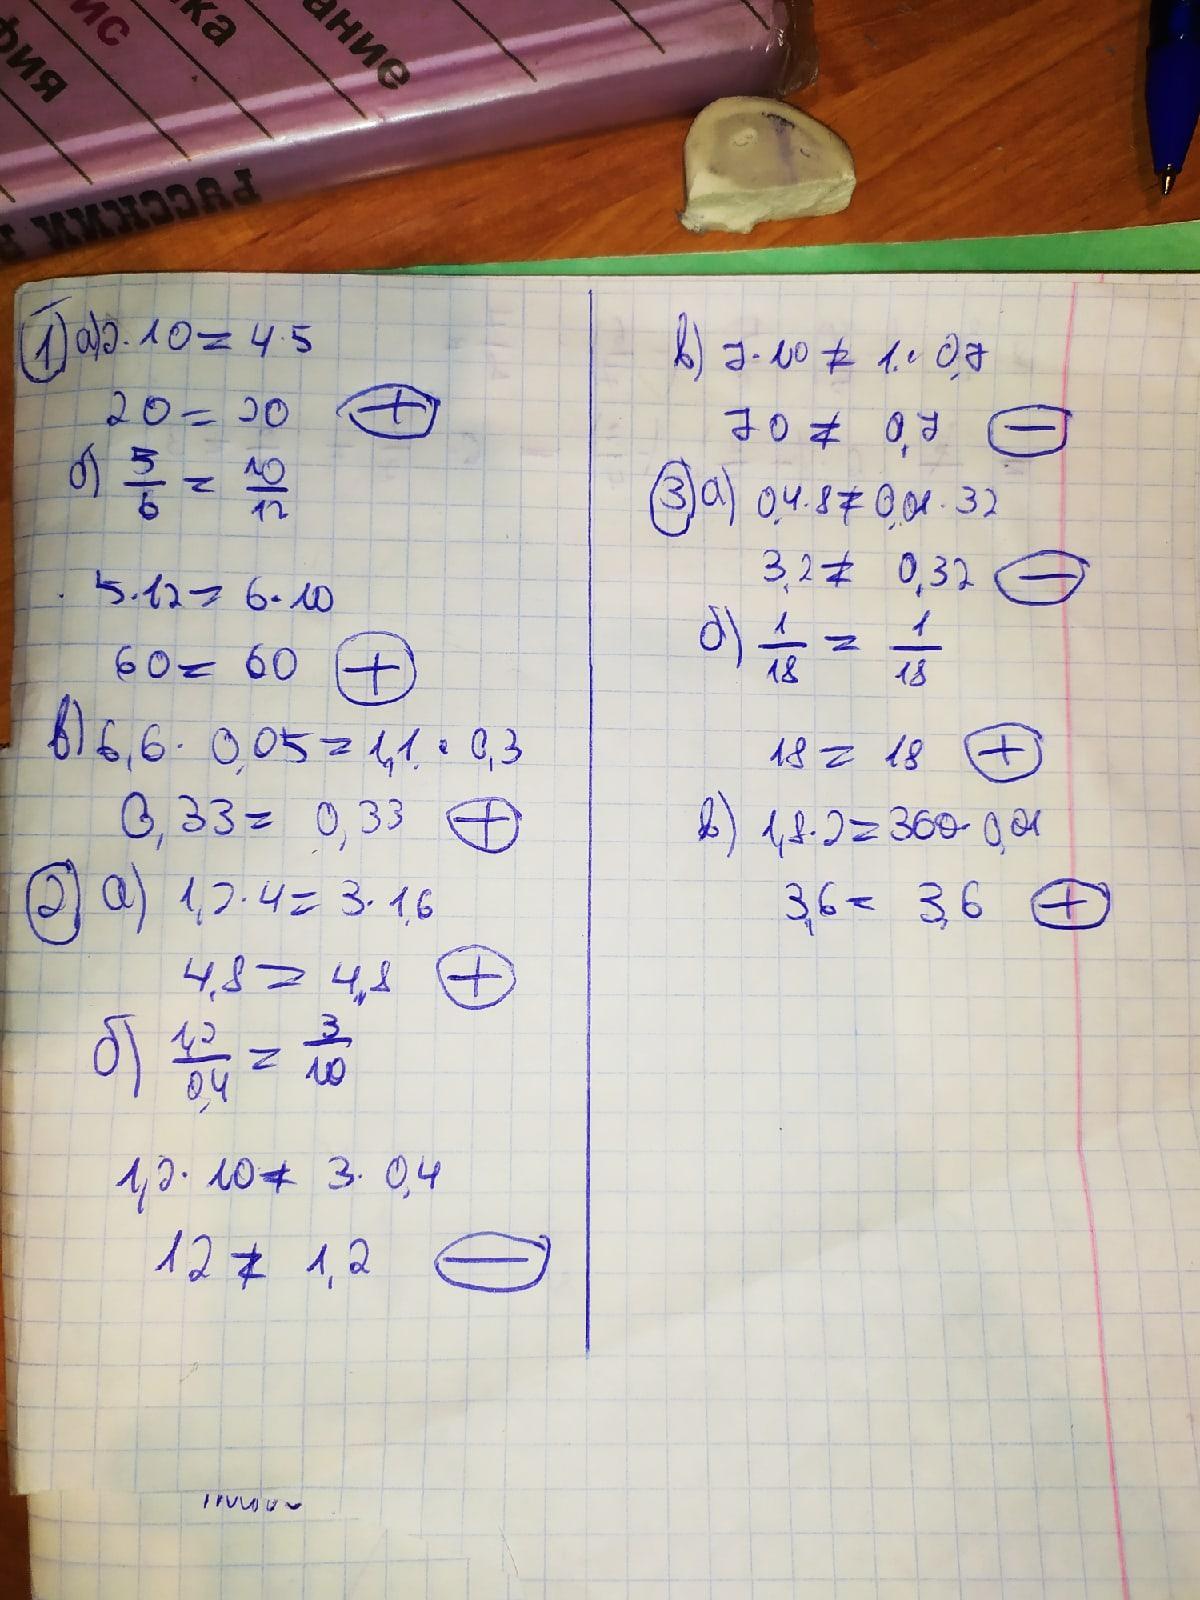 фия
ис
ка
ание
РУССКИЙ Я
1) а) 2·10 = 4·5
20 = 20 +
б) 5/6 = 10/12
5·12 = 6·10
60 = 60 +
в) 6,6·0,05 = 1,1·0,3
0,33 = 0,33 +
2) а) 1,2·4 = 3·1,6
4,8 = 4,8 +
б) 1,2/0,4 = 3/10
1,2·10 ≠ 3·0,4
12 ≠ 1,2 −
в) 7·10 ≠ 1·0,7
70 ≠ 0,7 −
3) а) 0,4·8 ≠ 0,01·32
3,2 ≠ 0,32 −
б) 1/18 = 1/18
18 = 18 +
в) 1,8·2 = 360·0,01
3,6 = 3,6 +